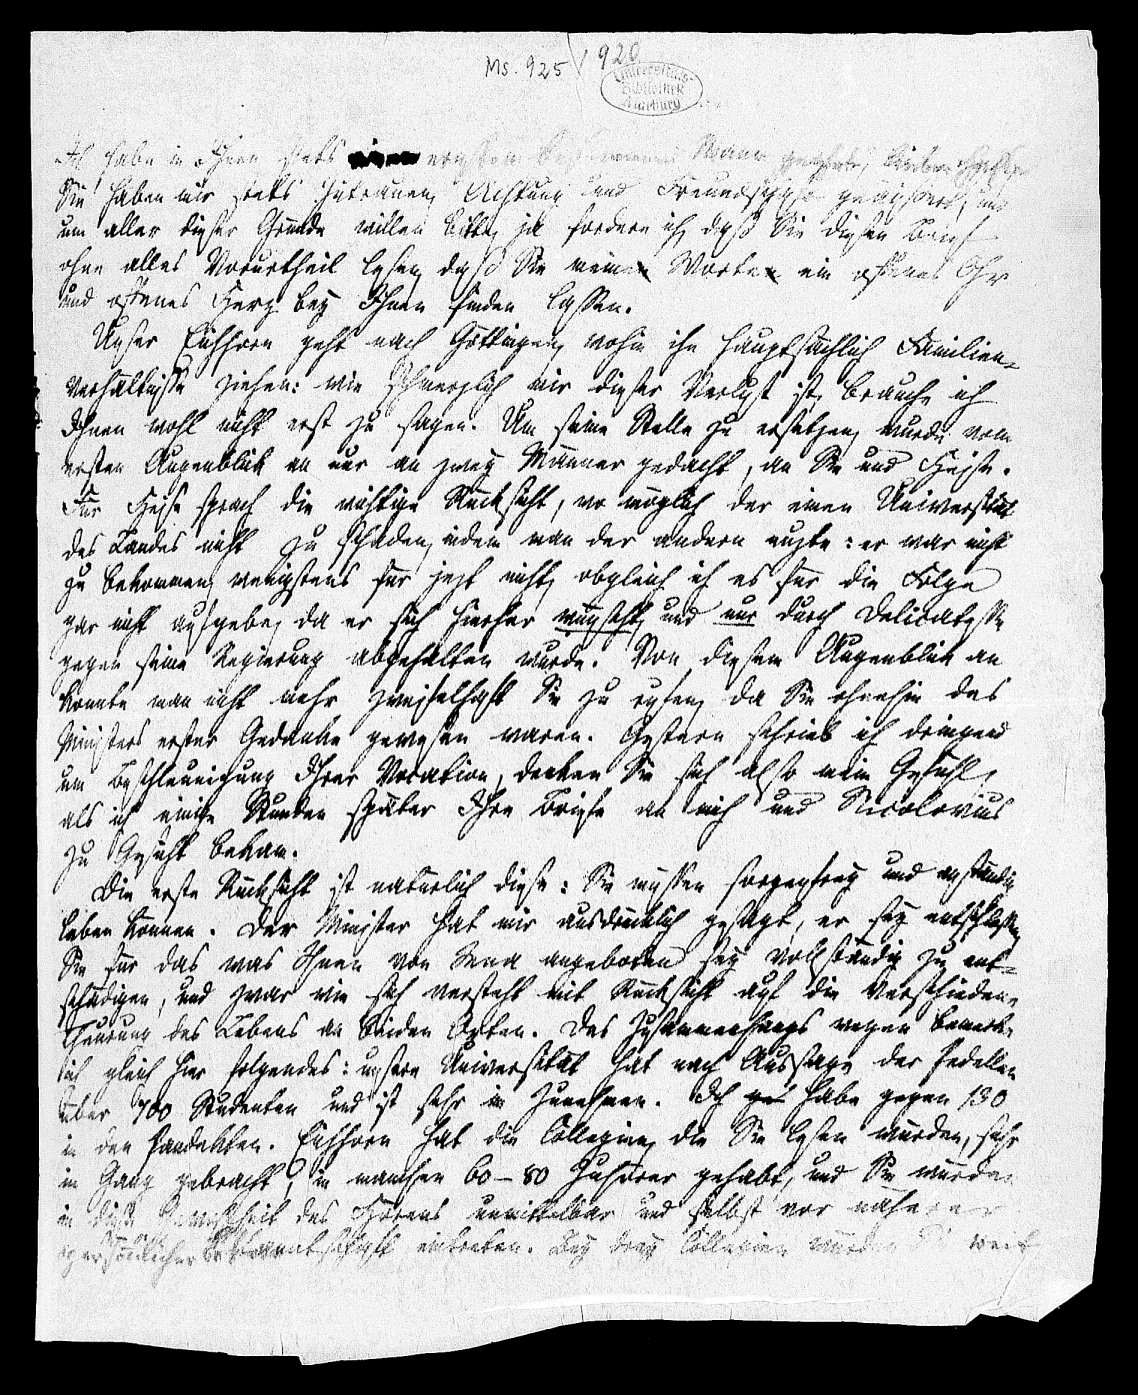 Ms. 925 / 920
Universitäts-
Bibliothek
Marburg
Ich habe in Ihnen stets einen ernsten Mann geachtet,
Sie haben mir stets Zutrauen, Achtung und Freundschaft geäussert, und
um aller dieser Gründe willen bitte, ja fordere ich, daß Sie diesen Brief
ohne alles Vorurtheil lesen, daß Sie meinen Worten ein offenes Ohr
und offenes Herz bey Ihnen finden lassen.
Unser Eichhorn geht nach Göttingen, wohin ihn hauptsächlich Familien-
verhältnisse ziehen: wie schmerzlich mir dieser Verlust ist, brauche ich
Ihnen wohl nicht erst zu sagen. Um seine Stelle zu ersetzen, wurde vom
ersten Augenblick an nur an zwey Männer gedacht, an Sie und Heise.
Für Heise sprach die wichtige Rücksicht, wo möglich der einen Universität
des Landes nicht zu schaden, indem man der andern nuzte: er war nicht
zu bekommen, wenigstens für jezt nicht, obgleich ich es für die Folge
gar nicht aufgebe, da er sich hierher wünscht, und nur durch Delicatesse
gegen seine Regierung abgehalten wurde. Von diesem Augenblick an
konnte man nicht mehr zweifelhaft Sie zu rufen, da Sie ohnehin des
Ministers erster Gedanke gewesen waren. Gestern schrieb ich dringend
um Beschleunigung Ihrer Vocation, denken Sie sich also mein Gefühl,
als ich einige Stunden später Ihre Briefe an mich und Nicolovius
zu Gesicht bekam.
Die erste Rücksicht ist natürlich diese: Sie müssen sorgenfrey und anständig
leben können. Der Minister hat mir ausdrücklich gesagt, er sey entschlossen
Sie für das was Ihnen von Jena angeboten sey vollständig zu ent-
schädigen, und zwar wie sich versteht mit Rücksicht auf die verschiedene
Theurung des Lebens an beiden Orten. Des Zusammenhangs wegen bemerke
ich gleich hier folgendes: unsere Universität hat nach Aussage der Pedellen
über 700 Studenten und ist sehr in Zunehmen. Ich ges habe gegen 130
in den Pandekten. Eichhorn hat die Collegien, die Sie lesen würden, sehr
in Gang gebracht, in manchen 60–80 Zuhörer gehabt, und Sie würden
in diese Gewohnheit des Hörens unmittelbar und selbst vor näherer
persönlicher Bekanntschaft eintreten. Bey drey Collegien würden weit